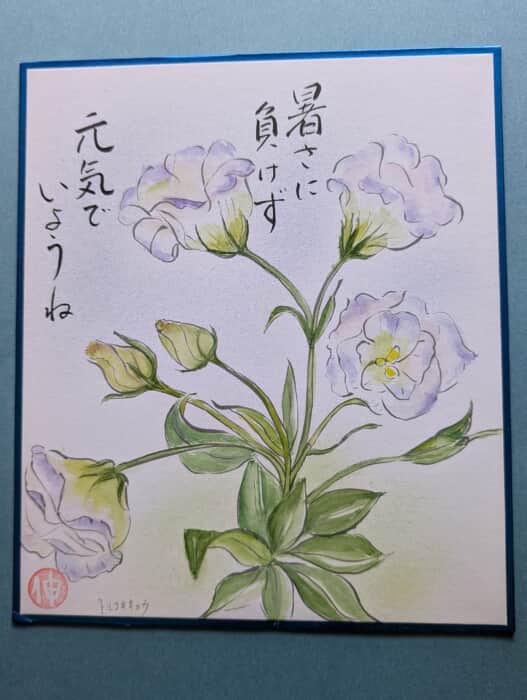 暑さに
負けず
元気で
いようね
トルコキキョウ
伸